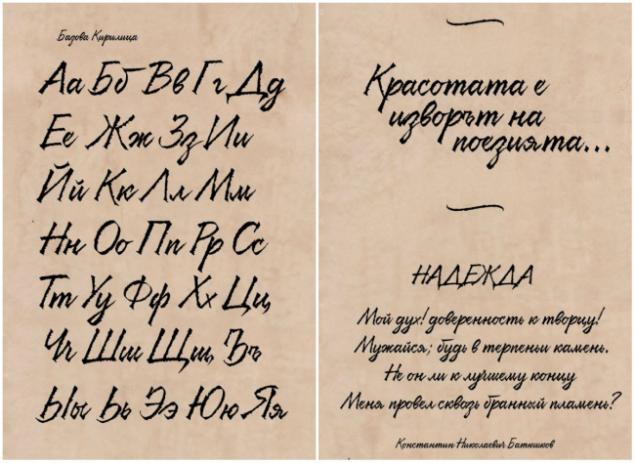 Базова Кирилица
Аа Бб Вв Гг Дд
Ее Жж Зз Ии
Йй Кк Лл Мм
Нн Оо Пп Рр Сс
Тт Уу Фф Хх Цц
Чч Шш Щщ Ъъ
Ыы Ьь Ээ Юю Яя
Красотата е
изворът на
поезията...
НАДЕЖДА
Мой дух! доверенность к творцу!
Мужайся; будь в терпеньи камень.
Не он ли к лучшему концу
Меня провел сквозь бранный пламень?
Константин Николаевич Батюшков